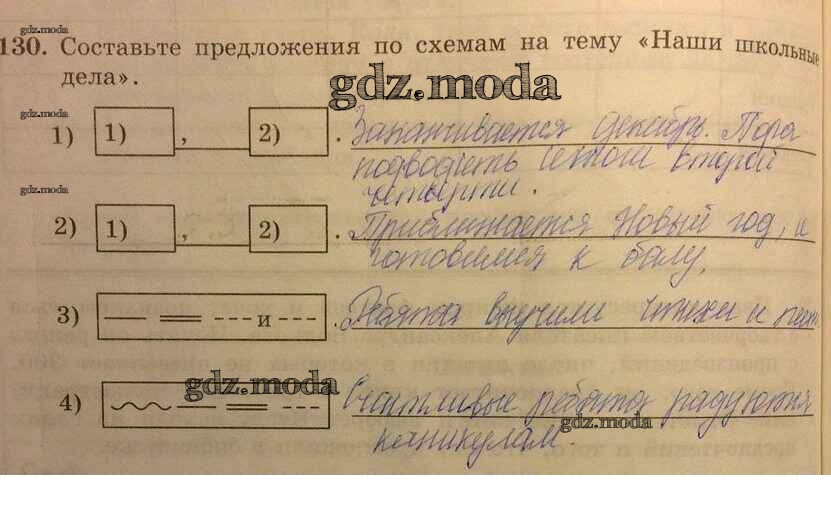 gdz.moda
130. Составьте предложения по схемам на тему «Наши школьные
дела».
gdz.moda
gdz.moda
1) 1) , 2) . Заканчивается декабрь. Пора
подводить итоги второй
четверти.
gdz.moda
2) 1) , 2) . Приближается Новый год, и
готовимся к балу.
3) и . Ребята выучили стихи и
gdz.moda
4) Счастливые ребята радуются
gdz.moda
каникулам.